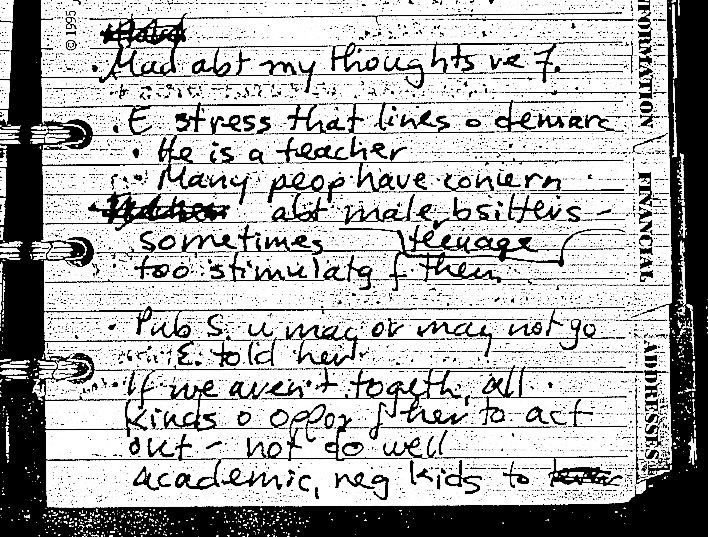 © 1995
• Mad abt my thoughts ve 7.
• E stress that lines o demarc
• He is a teacher
• Many peop have concern
abt male bsitters –
sometimes teenage
too stimulatg f them
• Pub S. u may or may not go
E. told her
• If we aren't togeth, all
kinds o oppor f her to act
out – not do well
academic, neg kids to
FORMATION
FINANCIAL
ADDRESSES